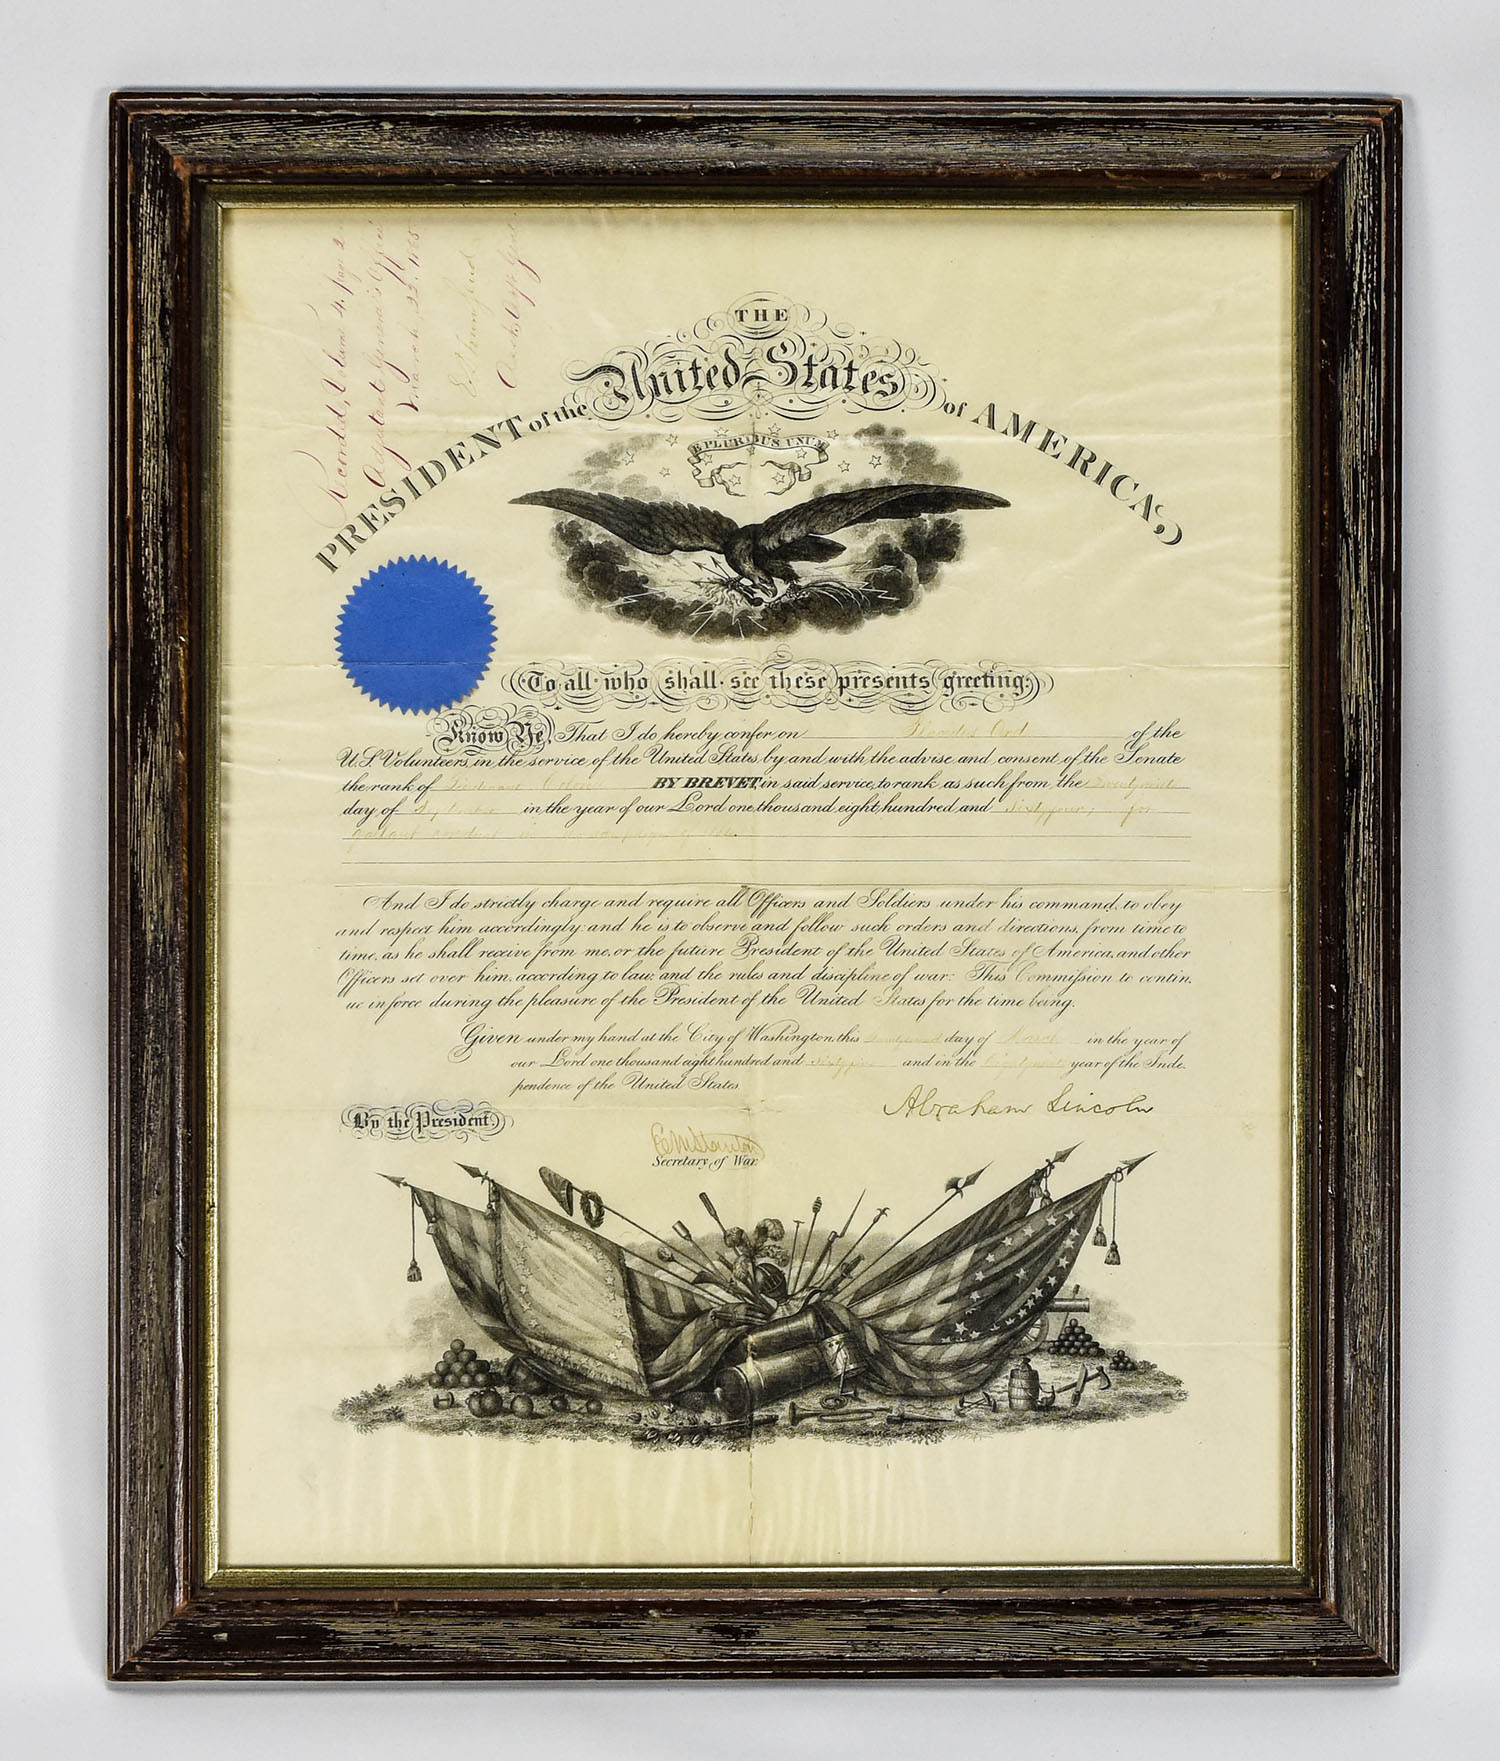 Recorded, Volume 4. page 2.
Adjutant General's Office
March 22, 1865
Asst Adjt Genl
THE
PRESIDENT of the United States of AMERICA,
E PLURIBUS UNUM
To all who shall see these presents greeting:
Know Ye, That I do hereby confer on Placidus Ord of the
U.S. Volunteers, in the service of the United States, by and with the advise and consent of the Senate
the rank of Lieutenant Colonel BY BREVET, in said service, to rank as such from the
day of September in the year of our Lord one thousand eight hundred and Sixtyfour; for
gallant conduct in the campaign of 1864.
And I do strictly charge and require all Officers and Soldiers under his command, to obey
and respect him accordingly: and he is to observe and follow such orders and directions, from time to
time, as he shall receive from me, or the future President of the United States of America, and other
Officers set over him, according to law; and the rules and discipline of war: This Commission to contin.
ue in force during the pleasure of the President of the United States for the time being.
Given under my hand at the City of Washington, this day of March in the year of
our Lord one thousand eight hundred and Sixtyfive and in the Eightyninth year of the Inde.
pendence of the United States.
Abraham Lincoln
By the President,
E M Stanton
Secretary of War.